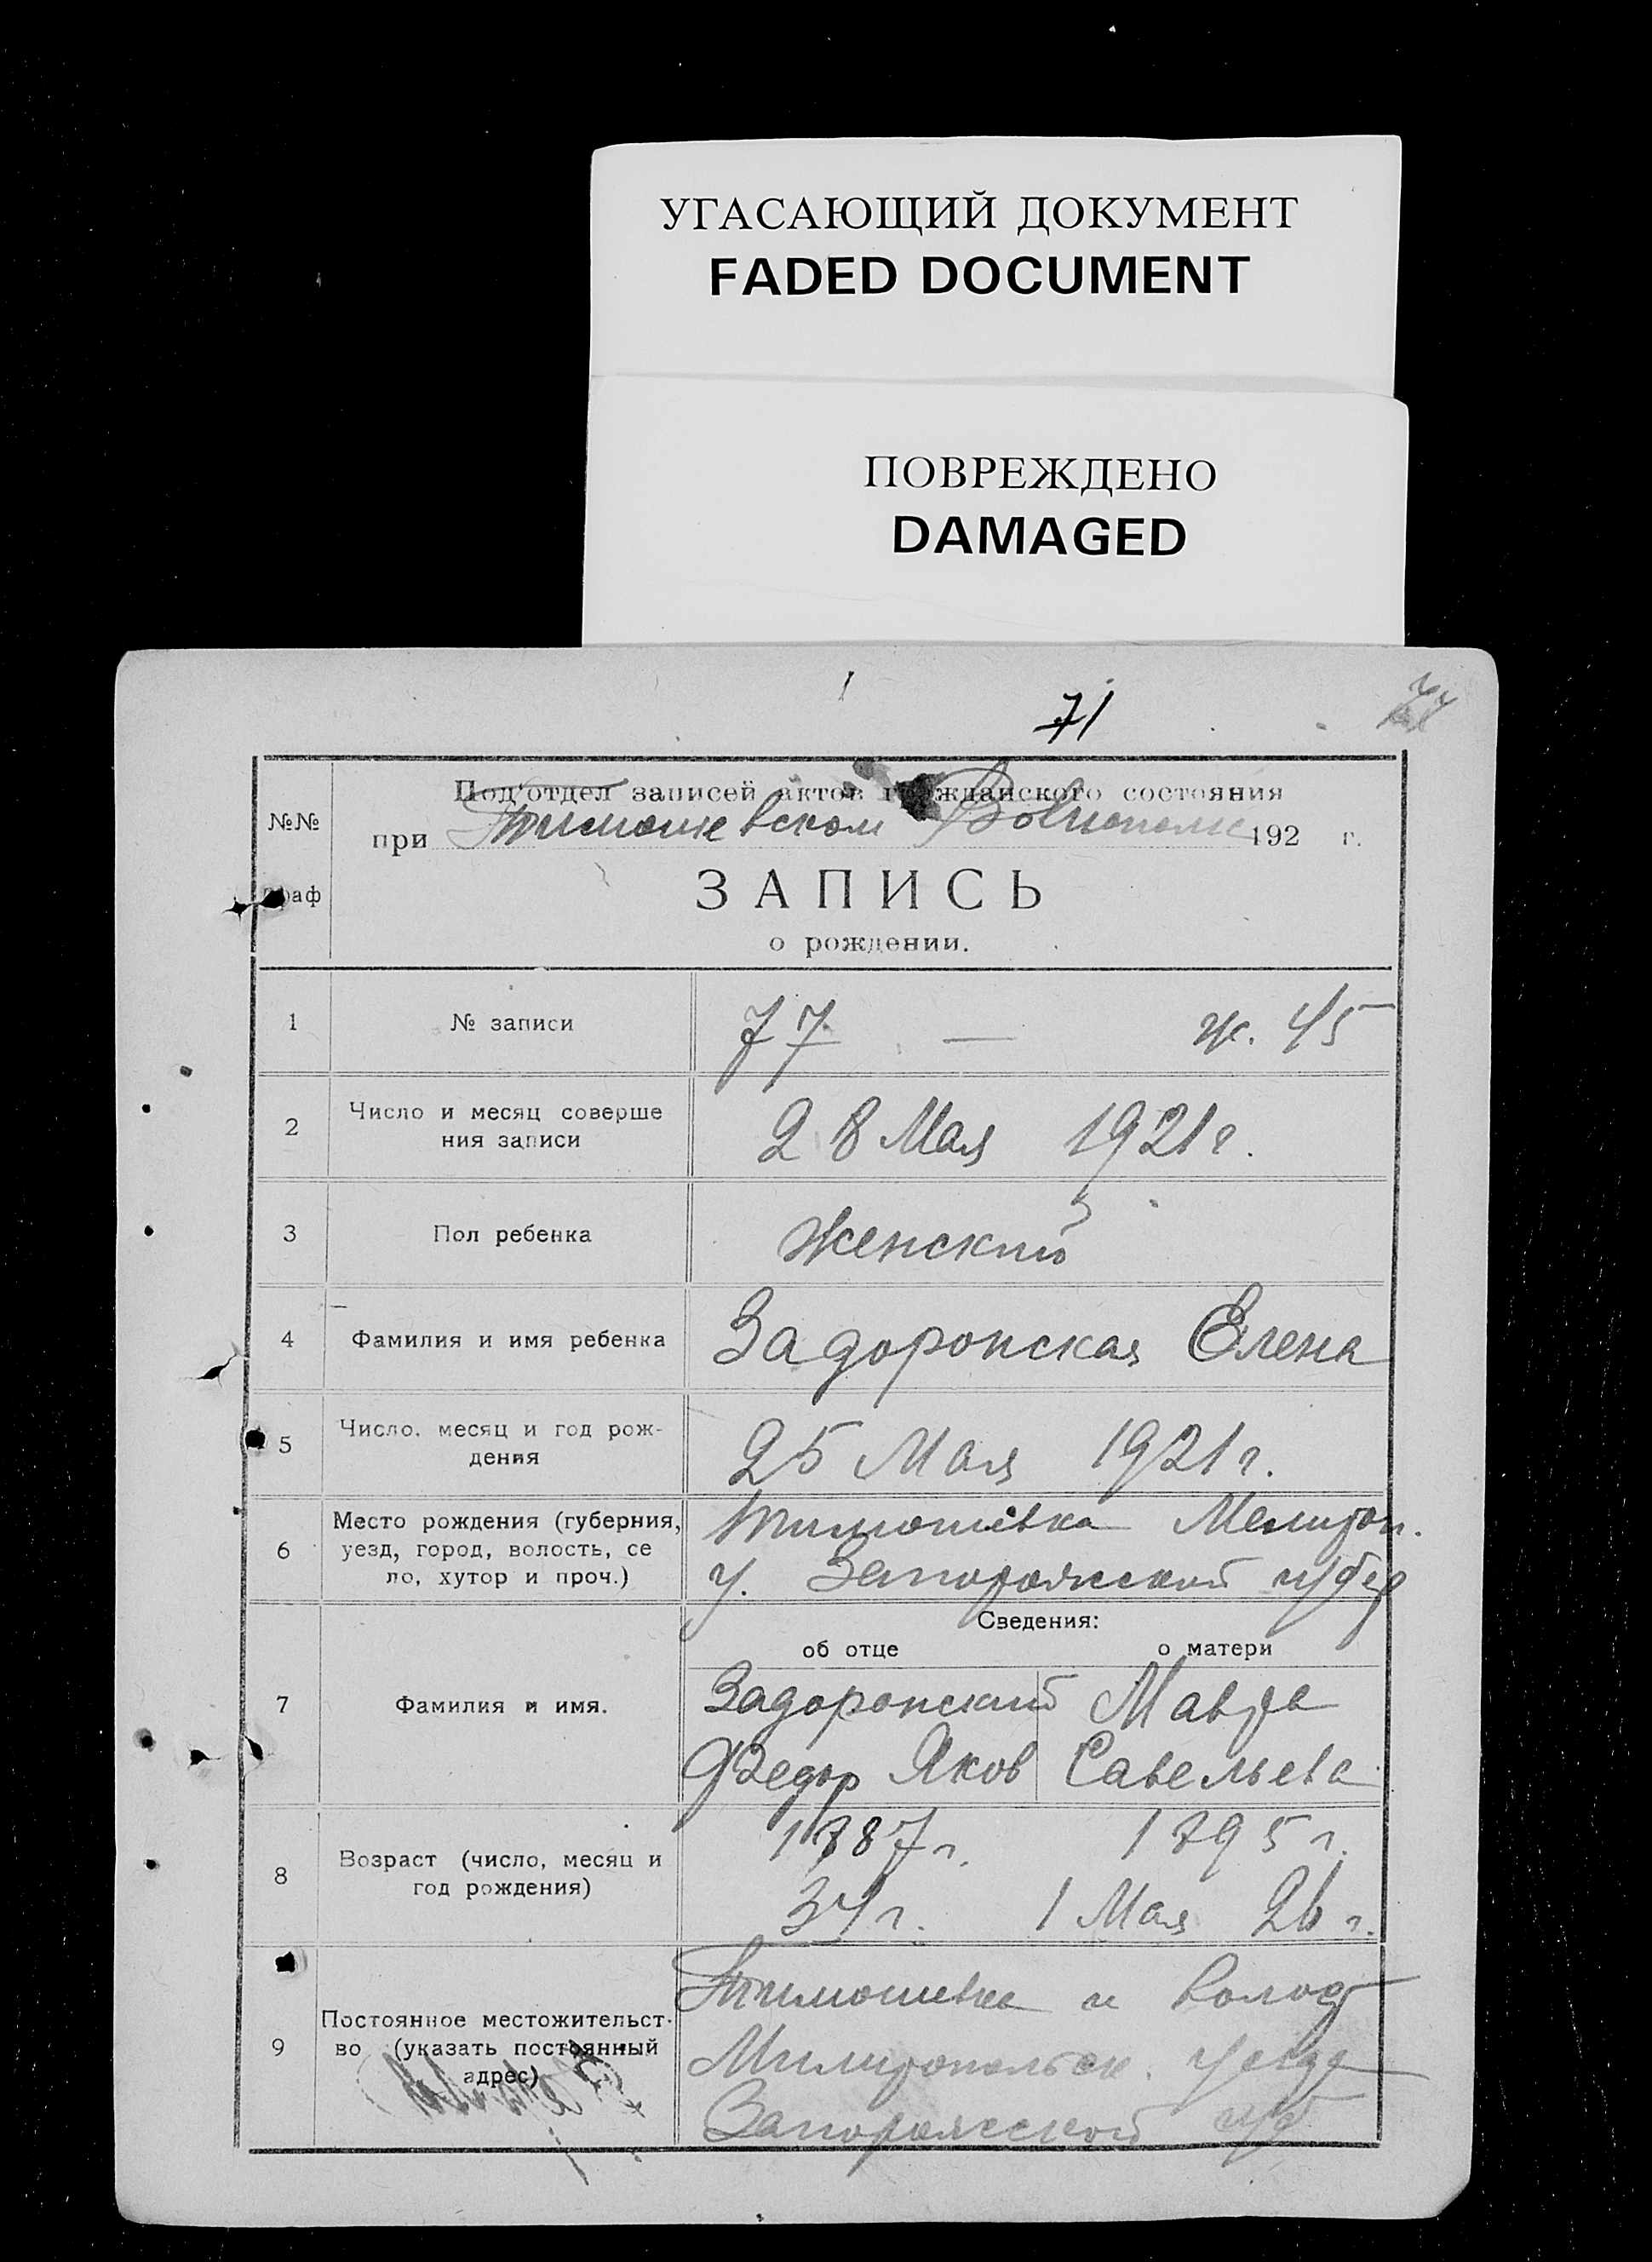 УГАСАЮЩИЙ ДОКУМЕНТ
FADED DOCUMENT
ПОВРЕЖДЕНО
DAMAGED
71
№№
граф
Под'отдел записей актов гражданского состояния
при Тимошевском 192 г.
ЗАПИСЬ
о рождении.
1 № записи 77 — ж. 45
2 Число и месяц соверше
ния записи
28 Мая 1921 г.
3 Пол ребенка Женский
4 Фамилия и имя ребенка Задоронская Елена
5 Число, месяц и год рож-
дения
25 Мая 1921 г.
6 Место рождения (губерния,
уезд, город, волость, се
ло, хутор и проч.)
Тимошевка Мелитоп.
у. Запорожской губер
Сведения:
об отце о матери
7 Фамилия и имя.
Задоронский Мавра
Федор Яков Савельева
8 Возраст (число, месяц и
год рождения)
1887 г. 1895 г.
34 г. 1 Мая 26 г.
9 Постоянное местожительст-
во (указать постоянный
адрес)
Тимошевка и волост
Милитопольск. уезда
Запорожской губ